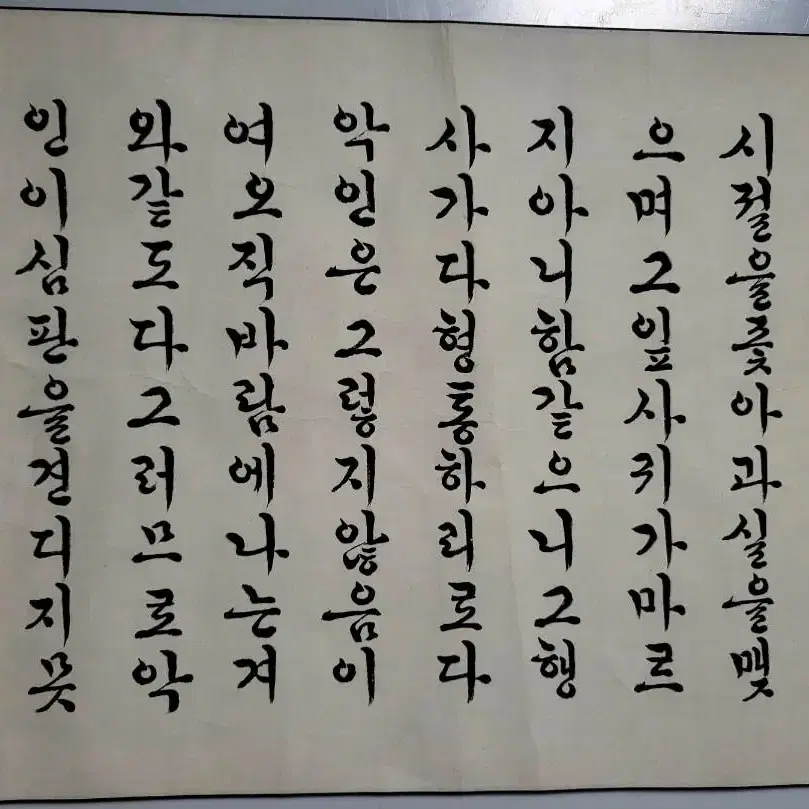 시절을좇아과실을맺
으며그잎사귀가마르
지아니함같으니그행
사가다형통하리로다
악인은그렇지않음이
여오직바람에나는겨
와같도다그러므로악
인이심판을견디지못